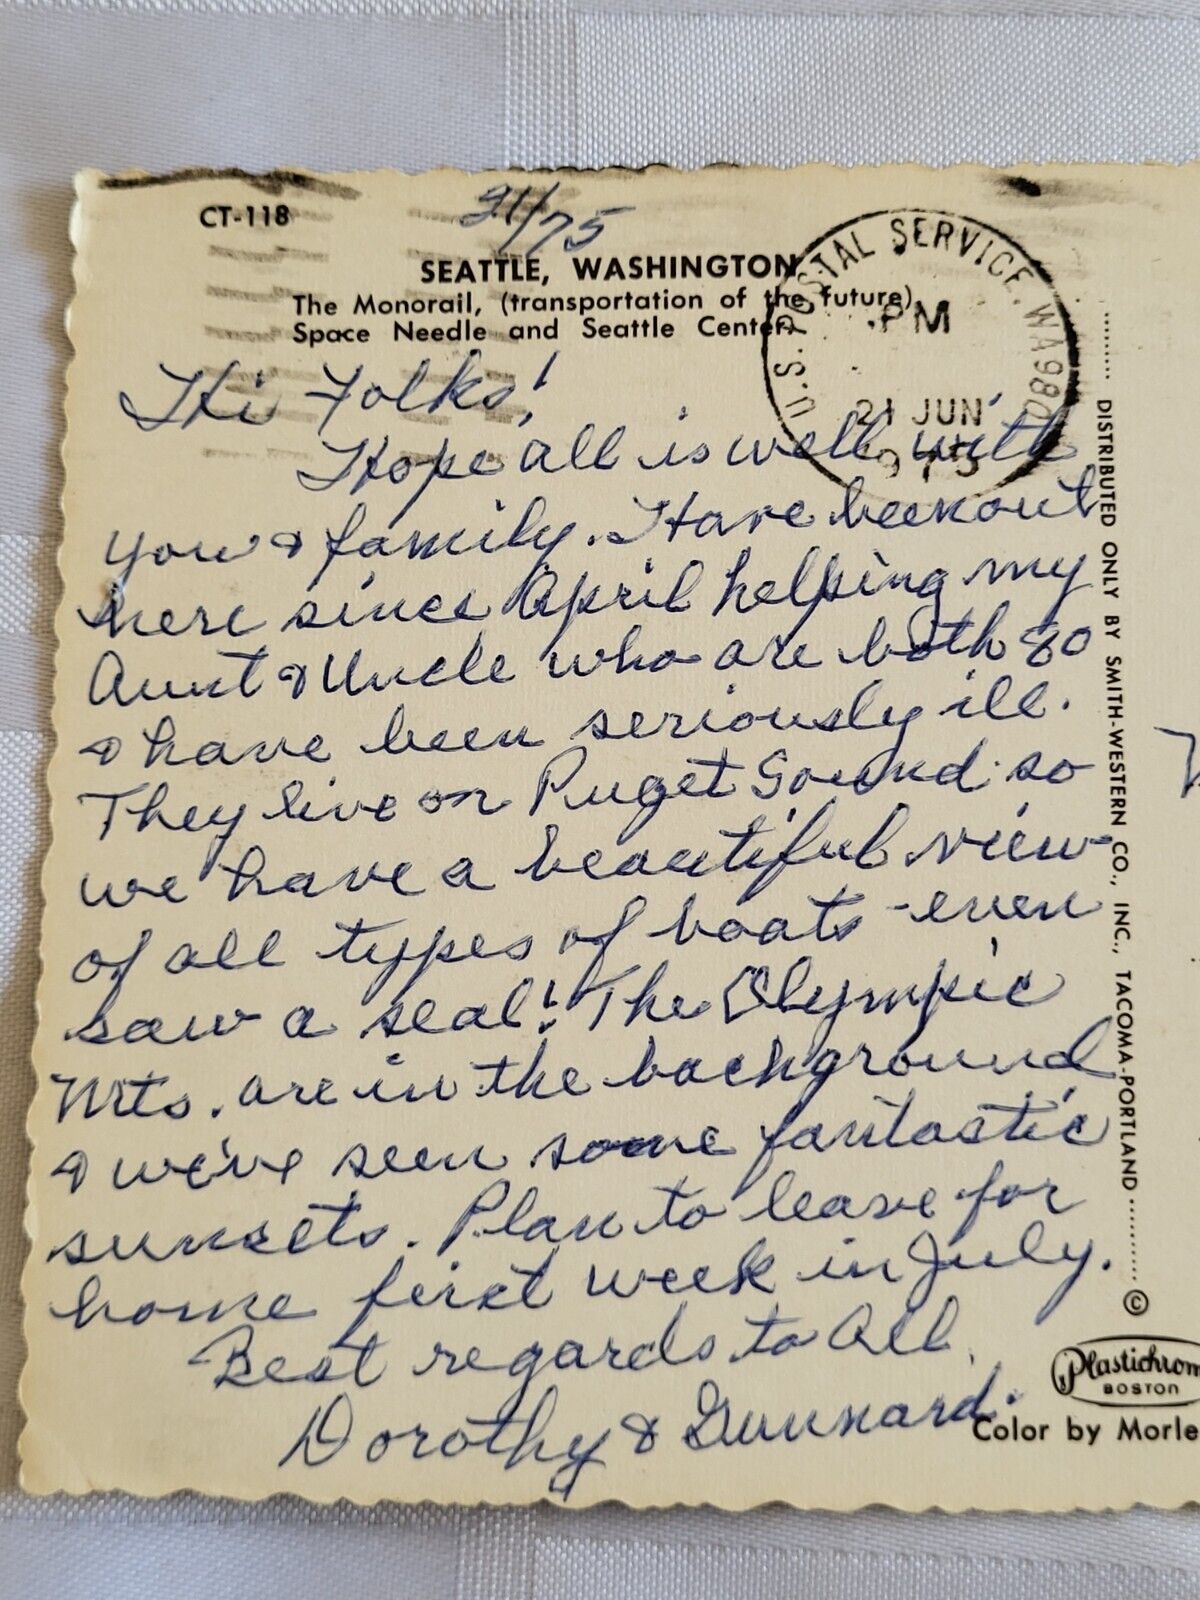 CT-118
21/75
SEATTLE, WASHINGTON
The Monorail, (transportation of the future),
Space Needle and Seattle Center.
U.S. POSTAL SERVICE, WA980
PM
21 JUN
1975
Hi Folks!
Hope all is well with
you & family. Have been out
here since April helping my
Aunt & Uncle who are both 80
& have been seriously ill.
They live on Puget Sound so
we have a beautiful view
of all types of boats - even
saw a seal! The Olympic
Mts. are in the background
& we've seen some fantastic
sunsets. Plan to leave for
home first week in July.
Best regards to All.
Dorothy & Gunnard.
DISTRIBUTED ONLY BY SMITH-WESTERN CO., INC., TACOMA-PORTLAND
©
Plastichrom
BOSTON
Color by Morle